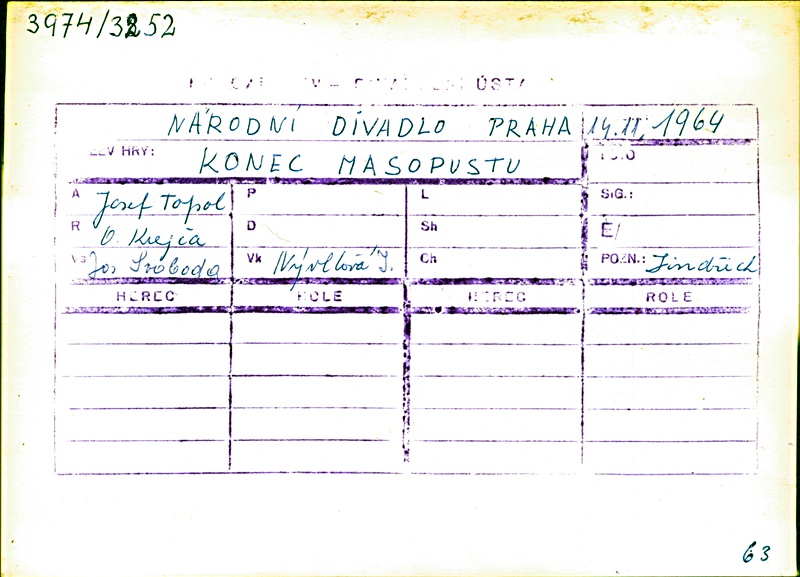 3974/3252
ÚSTA
NÁRODNÍ DIVADLO PRAHA 14.XI. 1964
ZEV HRY: KONEC MASOPUSTU
A Josef Topol P L SIG.:
R O. Krejča D Sh E/
Vs Jos Svoboda Vk Nývltová J. Ch POZN.: Jindřich
HEREC ROLE HEREC ROLE
63